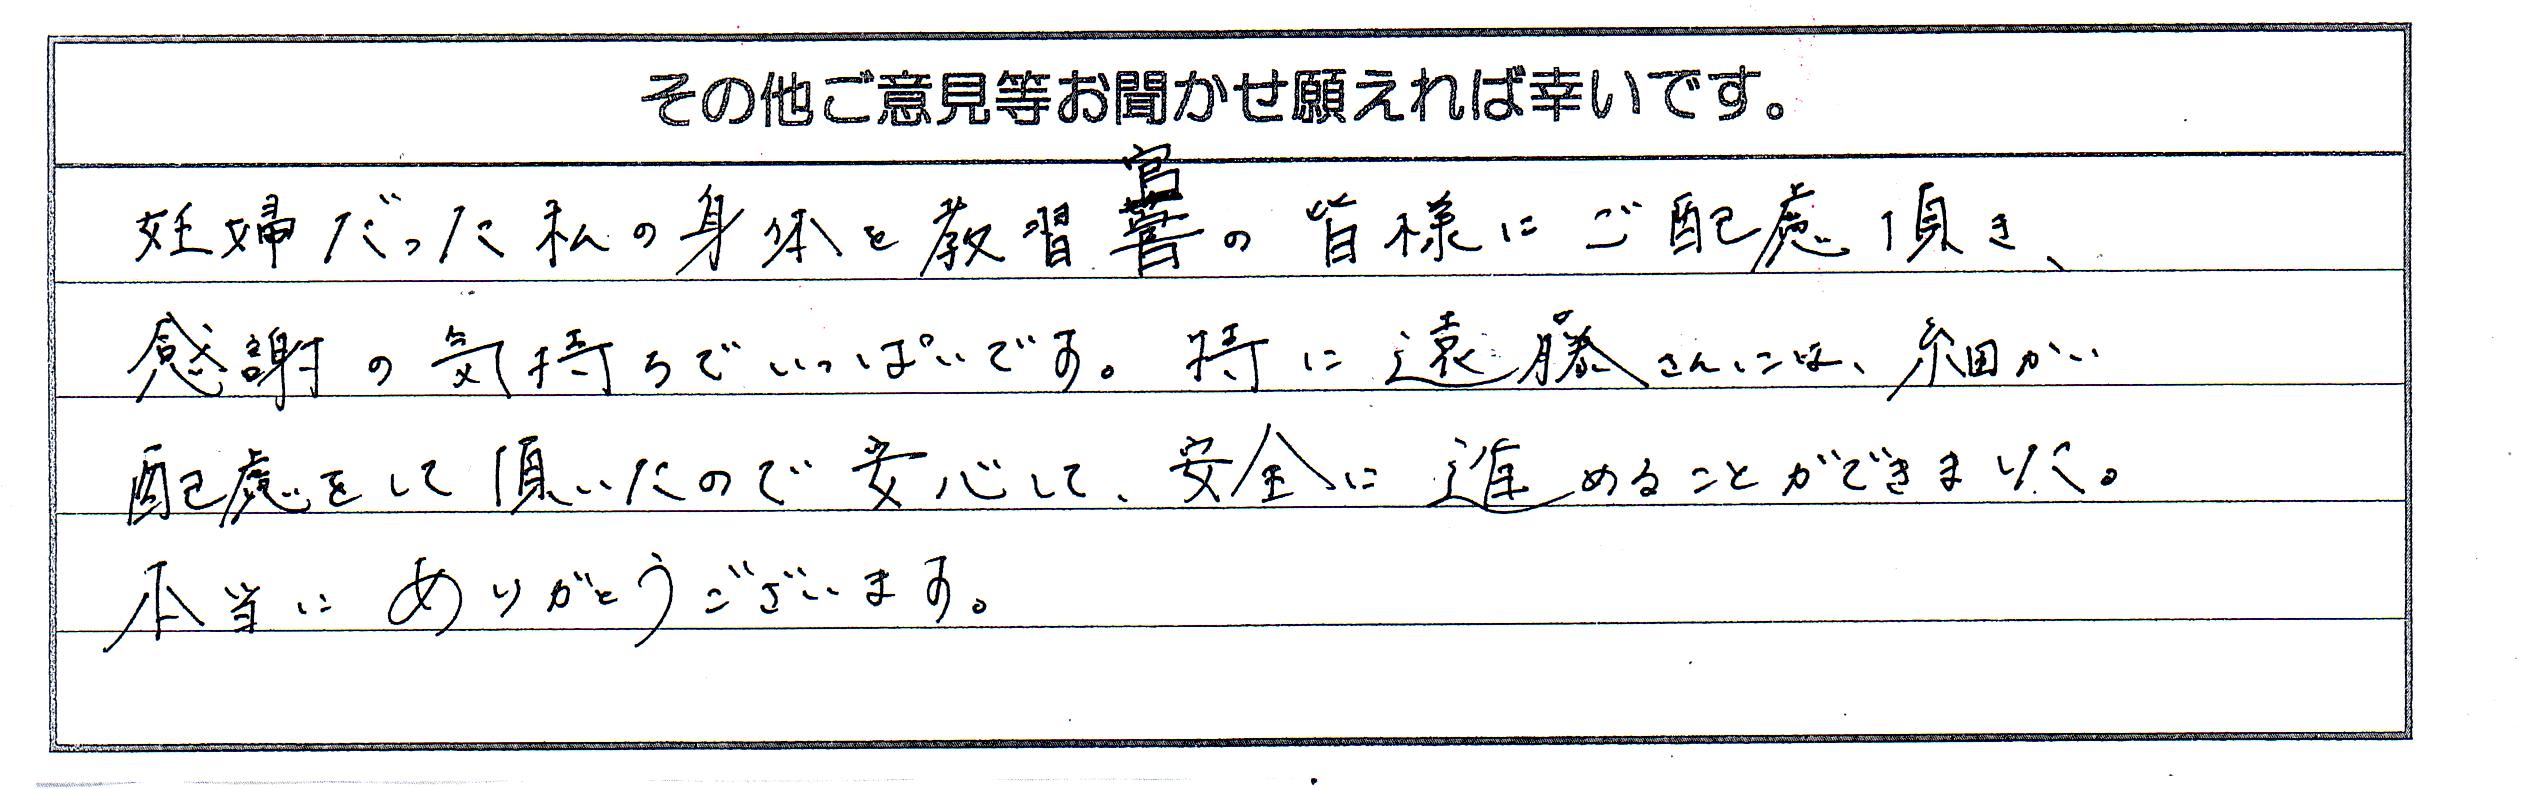 その他ご意見等お聞かせ願えれば幸いです。
妊婦だった私の身体を教習官の皆様にご配慮頂き、
感謝の気持ちでいっぱいです。特に遠藤さんには、細かい
配慮をして頂いたので安心して、安全に進めることができました。
本当にありがとうございます。